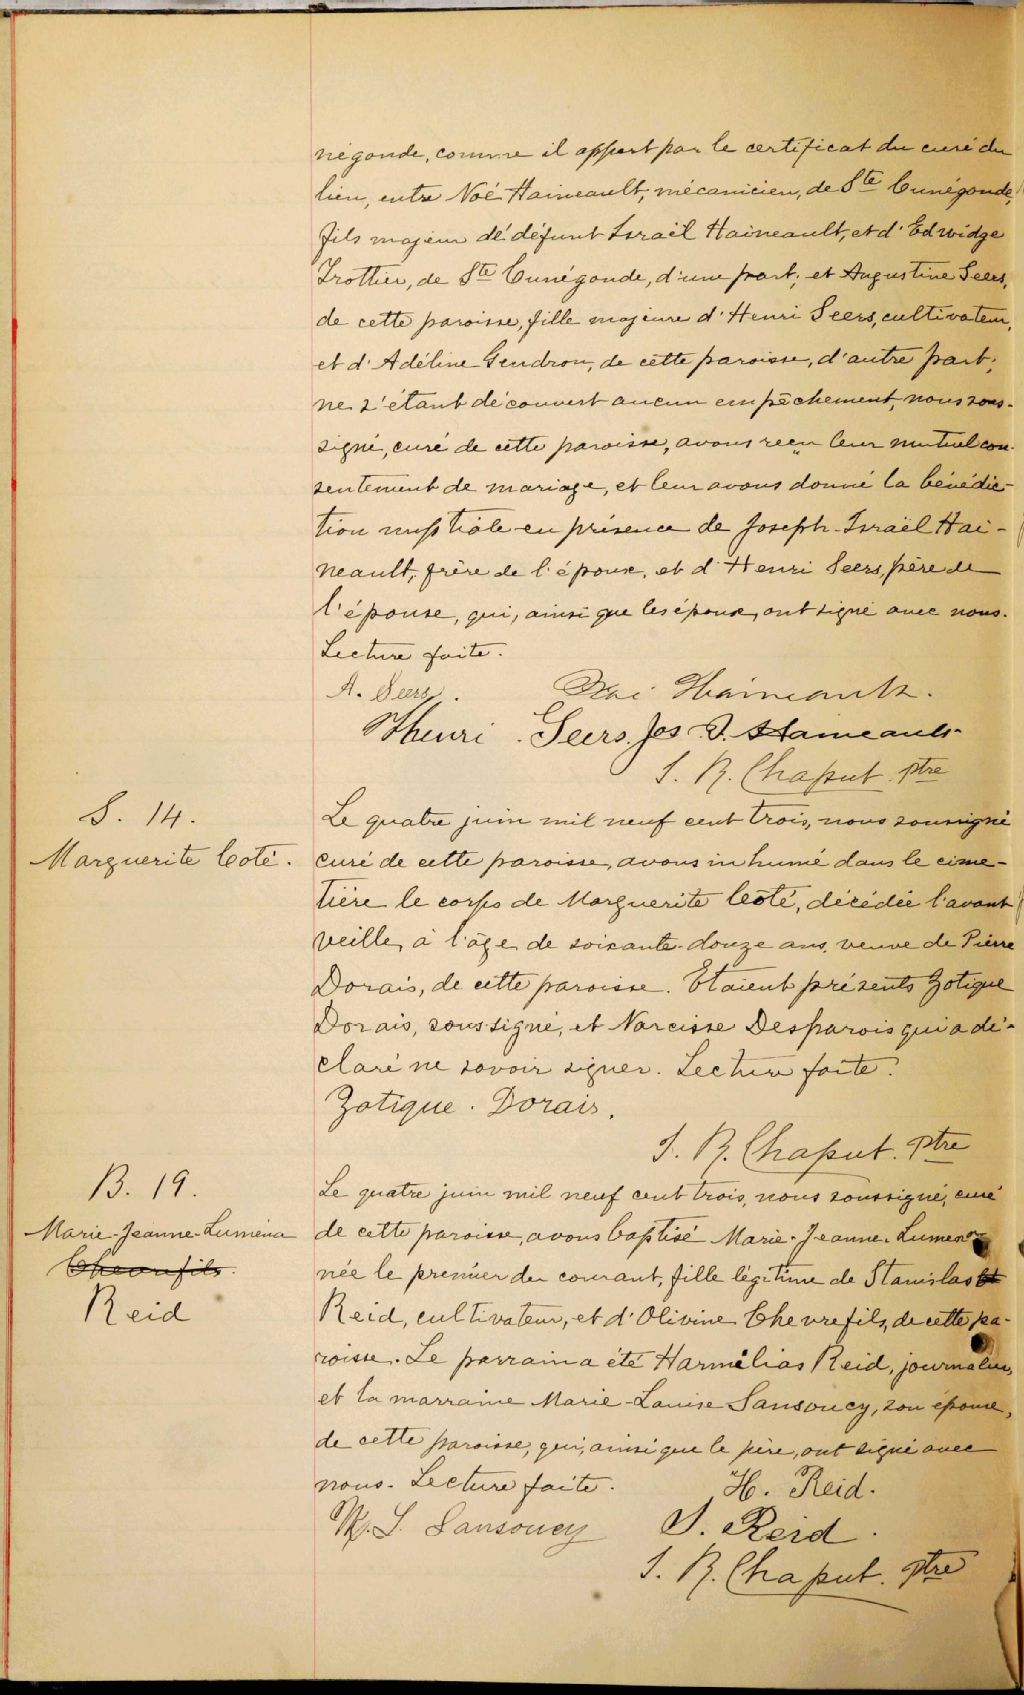 négonde, comme il appert par le certificat du curé du
lieu, entre Noé Haineault, mécanicien, de Ste Cunégonde,
fils majeur de défunt Israël Haineault, et d'Edwidge
Trottier, de Ste Cunégonde, d'une part; et Augustine Seers,
de cette paroisse, fille majeure d'Henri Seers, cultivateur,
et d'Adéline Gendron, de cette paroisse, d'autre part;
ne s'étant découvert aucun empêchement, nous sous-
signé, curé de cette paroisse, avons reçu leur mutuel con-
sentement de mariage, et leur avons donné la bénédic-
tion nuptiale en présence de Joseph-Israël Hai-
neault, frère de l'époux, et d'Henri Seers, père de
l'épouse, qui, ainsi que les époux, ont signé avec nous.
Lecture faite.
A. Seers. Noé Haineault.
Henri Seers. Jos I. Haineault
S. R. Chaput. Ptre
S. 14.
Marguerite Coté.
Le quatre juin mil neuf cent trois, nous soussigné
curé de cette paroisse, avons inhumé dans le cime-
tière le corps de Marguerite Côté, décédée l'avant
veille, à l'âge de soixante-douze ans, veuve de Pierre
Dorais, de cette paroisse. Etaient présents Zotique
Dorais, soussigné, et Narcisse Desparois qui a dé-
claré ne savoir signer. Lecture faite.
Zotique. Dorais.
S. R. Chaput. Ptre
B. 19.
Marie-Jeanne-Luména
Chevrefils.
Reid
Le quatre juin mil neuf cent trois, nous soussigné, curé
de cette paroisse, avons baptisé Marie-Jeanne-Lumena
née le premier du courant, fille légitime de Stanislas
Reid, cultivateur, et d'Olivine Chevrefils, de cette pa-
roisse. Le parrain a été Harmélias Reid, journalier,
et la marraine Marie-Louise Sansoucy, son épouse,
de cette paroisse, qui, ainsi que le père, ont signé avec
nous. Lecture faite. H. Reid.
M. L. Sansoucy S. Reid.
S. R. Chaput. Ptre